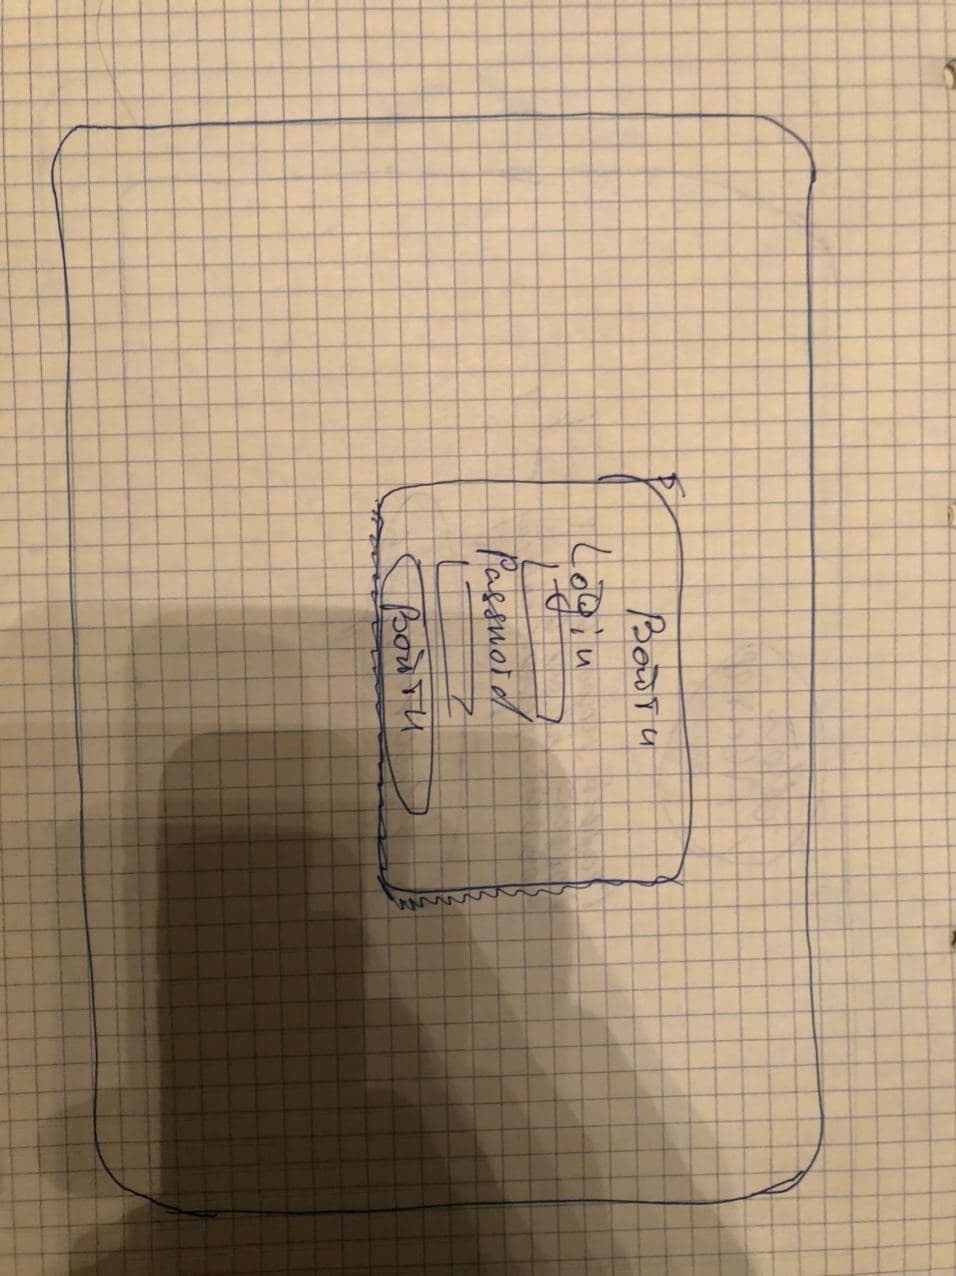 Войти
Login
Password
Войти